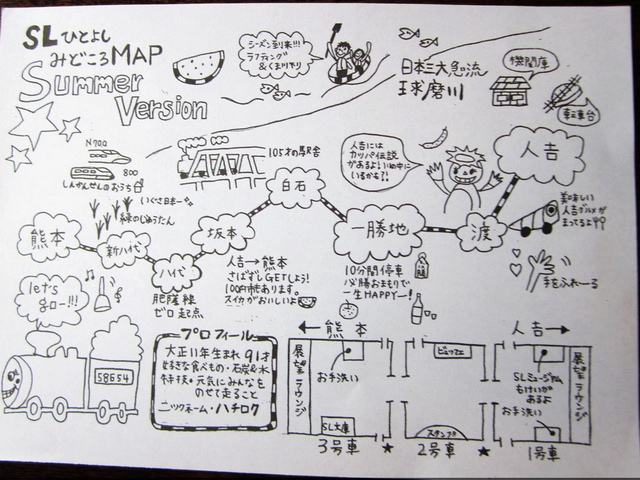 SLひとよし
みどころMAP
Summer
Version
シーズン到来!!!
ラフティング
&くま川下り
日本三大急流
球磨川
機関庫
転車台
N700
800
しんかんせんのおうち
105才の駅舎
人吉には
カッパ伝説
があるよ!
いるかも?!
人吉
美味しい
人吉グルメが
まってるよ
いぐさ日本一
緑のじゅうたん
熊本
新八代
八代
坂本
白石
一勝地
渡
肥薩線
ゼロ起点
人吉→熊本
さばずしGETしよう!
100円市あります。
スイカがおいしいよ
10分間停車
必勝おまもりで
一生HAPPYー!
手をふれーる
let's
go-!!!
58654
プロフィール
大正11年生まれ 91才
好きな食べもの・石炭&水
特技・元気にみんなを
のせて走ること
ニックネーム・ハチロク
←熊本
人吉→
展望ラウンジ
お手洗い
SL文庫
3号車
ビュッフェ
スタンプ
2号車
SLミュージアム
もけいが
あるよ
お手洗い
展望ラウンジ
1号車